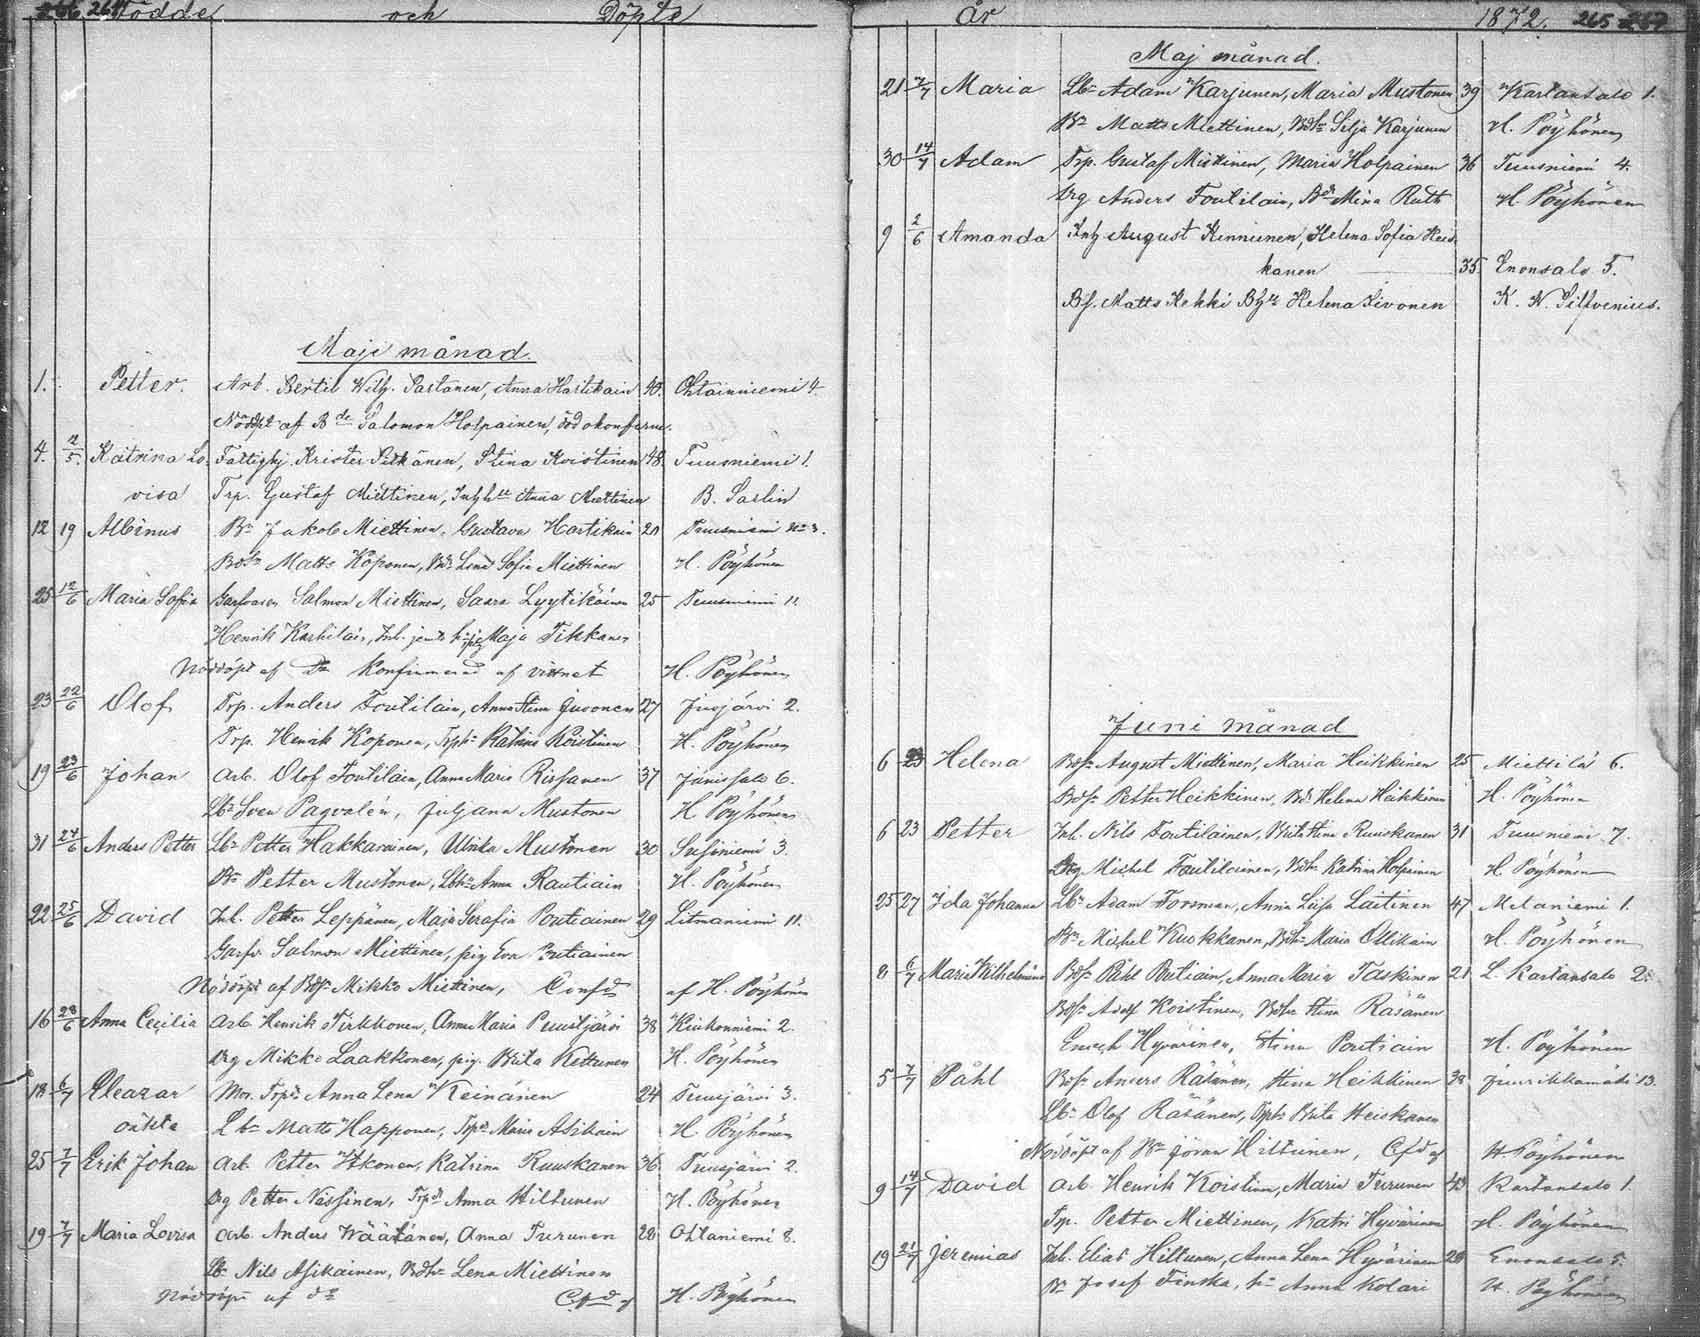 266 264 Födde och Döpte
Maji månad.
1. Petter. Arb. Bertil Wilh. Partanen, Anna Hartikain 40. Ohtaanniemi 4.
Nöddöpt af Bde Salomon Holpainen, död o konfirm.
4. 12/5. Katrina Lo- Fattighj. Krister Pitkänen, Stina Koistinen 48. Tuusniemi 1.
visa Trp. Gustaf Miettinen, Inhb Anna Miettinen B. Sarlin
12 19 Albinus Bn Jakob Miettinen, Gustava Hartikain 20 Tuusniemi No 3.
Bdsn Matts Koponen, Bdr Lena Sofia Miettinen H. Pöyhönen
25 12/6 Maria Sofia Garfvaren Salmon Miettinen, Saara Lyytikäinen 25 Tuusniemi 11
Henrik Karhilain, Inh. Maja Tikkanen
Nöddöpt af Dn Konfirmerad af vittnet H. Pöyhönen
23 22/6 Olof Trp. Anders Toutilain, Anna Stina Jusonen 27 Juojärvi 2.
Trp. Henrik Koponen, Trph Katrina Koistinen H. Pöyhönen
19 23/6 Johan Arb. Olof Toutilain, Anna Maria Rissanen 37 Jänissalo 6.
Lbn Sven Pagvalén, Juljana Mustonen H Pöyhönen
31 24/6 Anders Petter Lbn Petter Hakkarainen, Ulrika Mustonen 30 Susiniemi 3.
Bn Petter Mustonen, Lbhn Anna Rautiain H. Pöyhönen
22 25/6 David Inh. Petter Leppänen, Maja Serafia Poutiainen 29 Litmaniemi 11.
Garfv. Salmon Miettinen, pig Eva Poutiainen
Nöddöpt af Bdsn Mikko Miettinen, Confd af H. Pöyhönen
16 28/6 Anna Cecilia Arb. Henrik Tirkkonen, Anna Maria Puustjärvi 38 Kiukonniemi 2
Drg Mikko Laakkonen, pig. Brita Kettunen H. Pöyhönen
18 6/7 Eleazar Mor. Trpdr Anna Lena Keinänen 24 Tuusjärvi 3.
oäkta Lbn Matts Happonen, Trpd Maria Asikain H. Pöyhönen
25 7/7 Erik Johan Arb. Petter Itkonen, Katrina Ruuskanen 36. Tuusjärvi 2.
Drg Petter Nassinen, Trpd Anna Hiltunen H. Pöyhönen
19 7/7 Maria Lovisa Arb. Anders Wäätänen, Anna Turunen 28 Ohtaniemi 8.
Lbn Nils Asikainen, Bdhn Lena Miettinen
Nöddöpt af dn Cfd af H. Pöyhönen
År 1872. 265 267
Maj månad.
21 7/7 Maria Lbn Adam Karjunen, Maria Mustonen 39 Kartansalo 1.
Bn Matts Miettinen, Bdhn Silja Karjunen H. Pöyhönen
30 14/7 Adam Trp. Gustaf Miettinen, Maria Holpainen 36 Tuusniemi 4.
Drg Anders Toutilain, Bdr Mina Ruth H. Pöyhönen
9 2/6 Amanda Inhs August Kinnunen, Helena Sofia Heis-
kanen 35. Enonsalo 5.
Bs. Matts Kekki Bhu Helena Sivonen K. N. Silfvenius.
Juni månad
6 23 Helena Bdsn August Miettinen, Maria Heikkinen 25 Miettilä 6.
Bdsn Petter Heikkinen, Bdr Helena Heikkinen H. Pöyhönen
6 23 Petter Inh. Nils Toutilainen, Brita Stina Ruuskanen 31 Tuusniemi 7.
Drg Michel Toutilainen, Bdtr Katrina Holpainen H Pöyhönen
25 27 Ida Johanna Lbn Adam Forsman, Anna Lisa Laitinen 47 Melaniemi 1.
Bn Michel Kuokkanen, Bhn Maria Ollikain H. Pöyhönen
8 6/7 Maria Wilhelmina Bdsn Påhl Poutiain, Anna Maria Taskinen 21 L. Kartansalo 2.
Bdsn Adolf Koistinen, Bdtr Stina Räsänen
Enoch Hyvärinen, Stina Poutiain H. Pöyhönen
5 7/7 Påhl Bdsn Anders Räsänen, Stina Heikkinen 38 Juurikkamäki 13.
Lbn Olof Räsänen, Trphn Brita Heiskanen
Nöddöpt af Bn Jöran Hiltunen, Cfd af H Pöyhönen
9 14/7 David Arb. Henrik Koistinen, Maria Turunen 43 Kartansalo 1.
Trp. Petter Miettinen, Katri Hyvärinen H. Pöyhönen
19 21/7 Jeremias Inh. Elias Hiltunen, Anna Lena Hyvärinen 28 Enonsalo 5.
Bn Josef Finska, hn Anna Kolari H. Pöyhönen